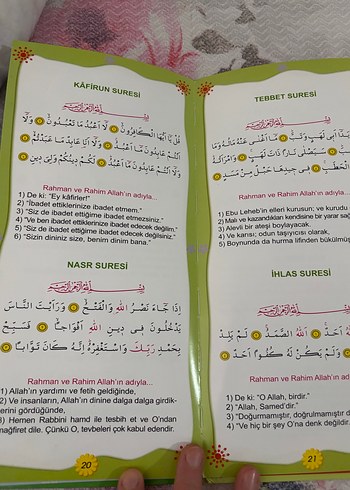 KÂFİRUN SURESİ
قُلْ يَا أَيُّهَا الْكَافِرُونَ لَا أَعْبُدُ مَا تَعْبُدُونَ وَلَا
أَنْتُمْ عَابِدُونَ مَا أَعْبُدُ وَلَا أَنَا عَابِدٌ مَا عَبَدْتُمْ
وَلَا أَنْتُمْ عَابِدُونَ مَا أَعْبُدُ لَكُمْ دِينُكُمْ وَلِيَ دِينِ
Rahman ve Rahim Allah'ın adıyla...
1) De ki: "Ey kâfirler!"
2) "İbadet ettiklerinize ibadet etmem."
3) "Siz de ibadet ettiğime ibadet etmezsiniz."
4) "Ve ben ibadet ettiklerinize ibadet edecek değilim."
5) "Siz de ibadet ettiğime ibadet edecek değilsiniz."
6) "Sizin dininiz size, benim dinim bana."
NASR SURESİ
إِذَا جَاءَ نَصْرُ اللَّهِ وَالْفَتْحُ وَرَأَيْتَ النَّاسَ
يَدْخُلُونَ فِي دِينِ اللَّهِ أَفْوَاجًا فَسَبِّحْ
بِحَمْدِ رَبِّكَ وَاسْتَغْفِرْهُ إِنَّهُ كَانَ تَوَّابًا
Rahman ve Rahim Allah'ın adıyla...
1) Allah'ın yardımı ve fetih geldiğinde,
2) Ve insanların, Allah'ın dinine dalga dalga girdik-
lerini gördüğünde,
3) Hemen Rabbini hamd ile tesbih et ve O'ndan
mağfiret dile. Çünkü O, tevbeleri çok kabul edendir.
20
TEBBET SURESİ
يَدَا أَبِي لَهَبٍ وَتَبَّ مَا أَغْنَى عَنْهُ مَالُهُ وَمَا
سَيَصْلَى نَارًا ذَاتَ لَهَبٍ وَامْرَأَتُهُ
الْحَطَبِ فِي جِيدِهَا حَبْلٌ مِنْ مَسَدٍ
Rahman ve Rahim Allah'ın adıyla...
1) Ebu Leheb'in elleri kurusun; ve kurudu
2) Malı ve kazandıkları kendisine bir yarar sağ
3) Alevli bir ateşi boylayacak.
4) Ve karısı; odun taşıyıcısı olarak,
5) Boynunda da hurma lifinden bükülmüş
İHLAS SURESİ
اللَّهُ أَحَدٌ اللَّهُ الصَّمَدُ لَمْ يَلِدْ
وَلَمْ يَكُنْ لَهُ كُفُوًا أَحَدٌ
Rahman ve Rahim Allah'ın adıyla
1) De ki: "O Allah, birdir."
2) "Allah, Samed'dir."
3) "Doğurmamıştır, doğrulmamıştır d
4) "Ve hiç bir şey O'na denk değildir.
21